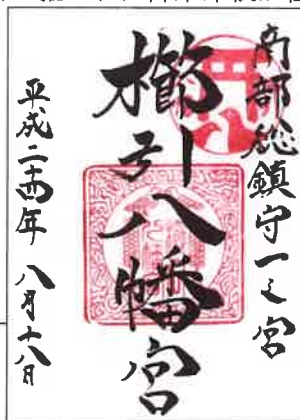 南部総鎮守一之宮
櫛引八幡宮
平成二十四年 八月十八日